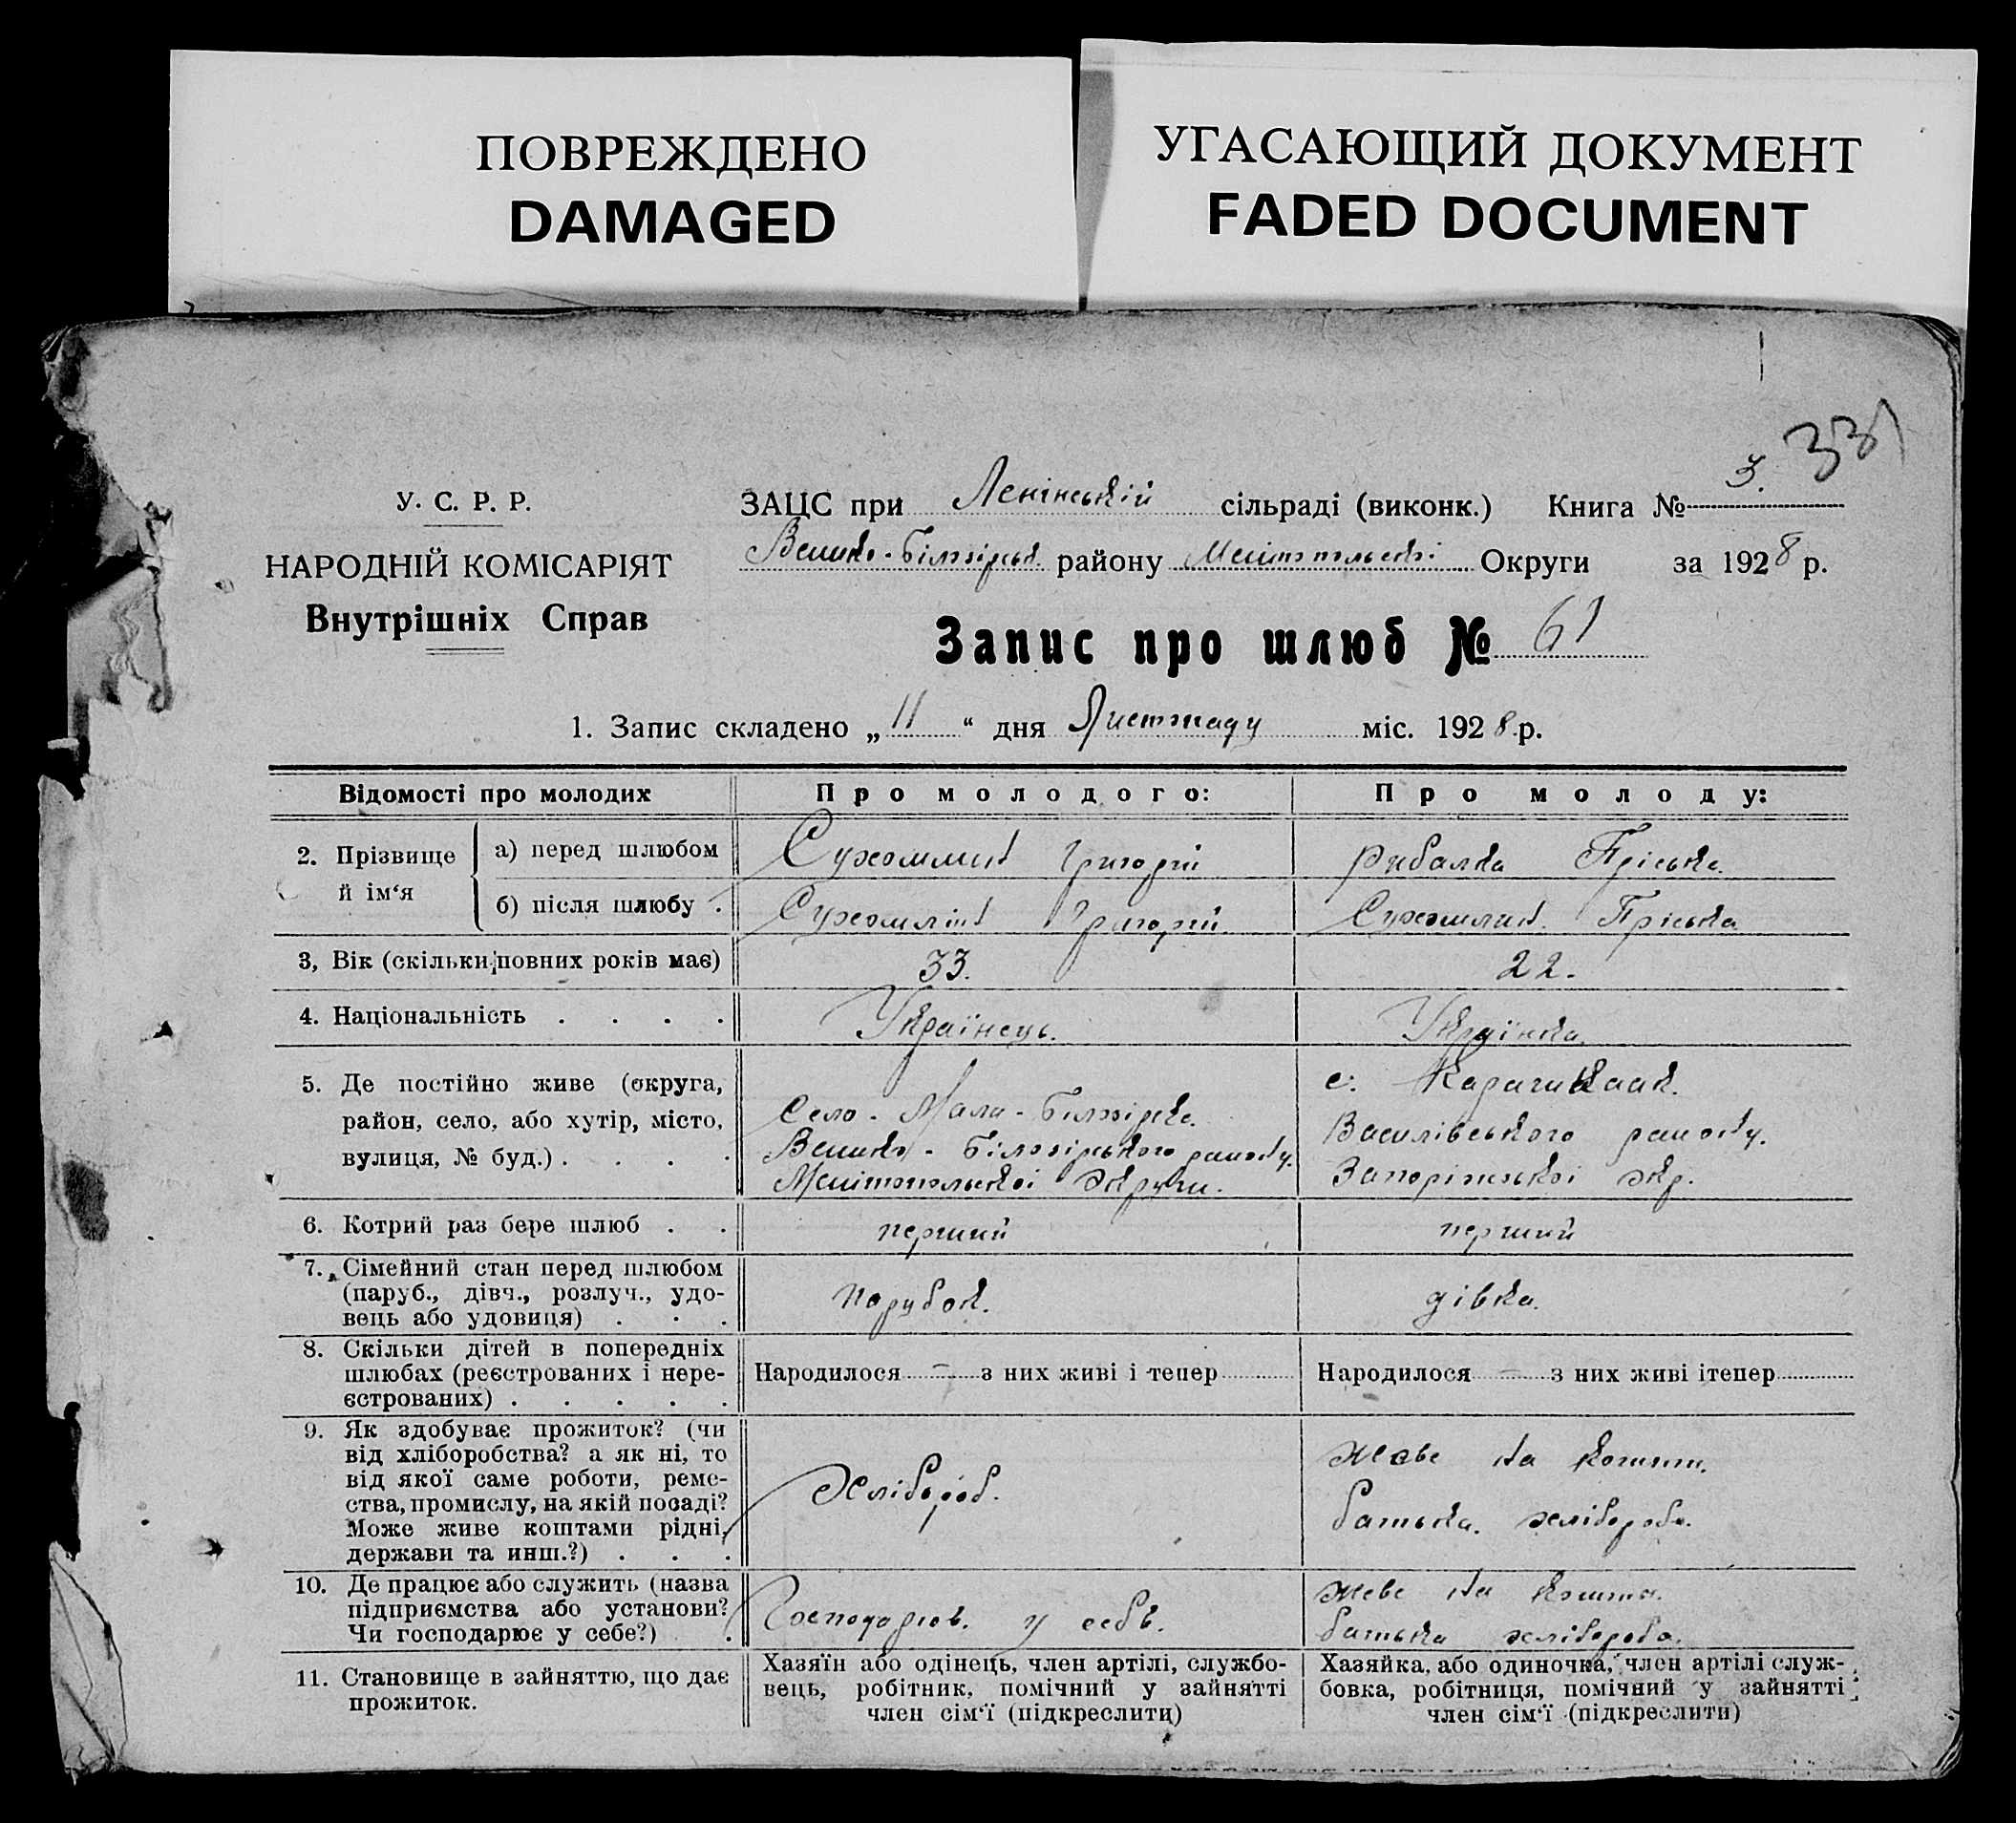 ПОВРЕЖДЕНО
DAMAGED
УГАСАЮЩИЙ ДОКУМЕНТ
FADED DOCUMENT
331
У. С. Р. Р.
НАРОДНІЙ КОМІСАРІЯТ
Внутрішніх Справ
ЗАЦС при Ленінській сільраді (виконк.) Книга № 3.
Велико-Білозірськ. району Мелітопольскої Округи за 1928 р.
Запис про шлюб № 61
1. Запис складено „11“ дня Листопаду міс. 1928 р.
Відомості про молодих
Про молодого:
Про молоду:
2. Прізвище й ім‘я
а) перед шлюбом
Сухомлин Григорій
Рибалка Пріська.
б) після шлюбу .
Сухомлін Григорій.
Сухомлин. Пріська
3, Вік (скільки повних років має)
33.
22.
4. Національність . . . .
Українець.
Українка.
5. Де постійно живе (округа,
район, село, або хутір, місто,
вулиця, № буд.) . . . .
Село - Мала - Білозірка.
Велико - Білозірського району.
Мелітопольскої Округи.
с. Карачикрак.
Василівського району.
Запоріжської окр.
6. Котрий раз бере шлюб . .
перший
перший
7. Сімейний стан перед шлюбом
(паруб., дівч., розлуч., удо-
вець або удовиця) . . .
Парубок.
дівка.
8. Скільки дітей в попередніх
шлюбах (реєстрованих і нере-
єстрованих) . . . . .
Народилося – з них живі і тепер
Народилося – з них живі ітепер
9. Як здобуває прожиток? (чи
від хліборобства? а як ні, то
від якої саме роботи, реме-
ства, промислу, на якій посаді?
Може живе коштами рідні,
держави та инш.?) . . .
Хлібороб.
живе на кошти.
батька. хлібороба.
10. Де працює або служить (назва
підприємства або установи?
Чи господарює у себе?) .
Господарюв. у себе.
живе на кошти.
батька хлібороба.
11. Становище в зайняттю, що дає
прожиток.
Хазяїн або одінець, член артілі, службо-
вець, робітник, помічний у зайнятті
член сім‘ї (підкреслити)
Хазяйка, або одиночка, член артілі служ-
бовка, робітниця, помічний у зайнятті
член сім‘ї (підкреслити)